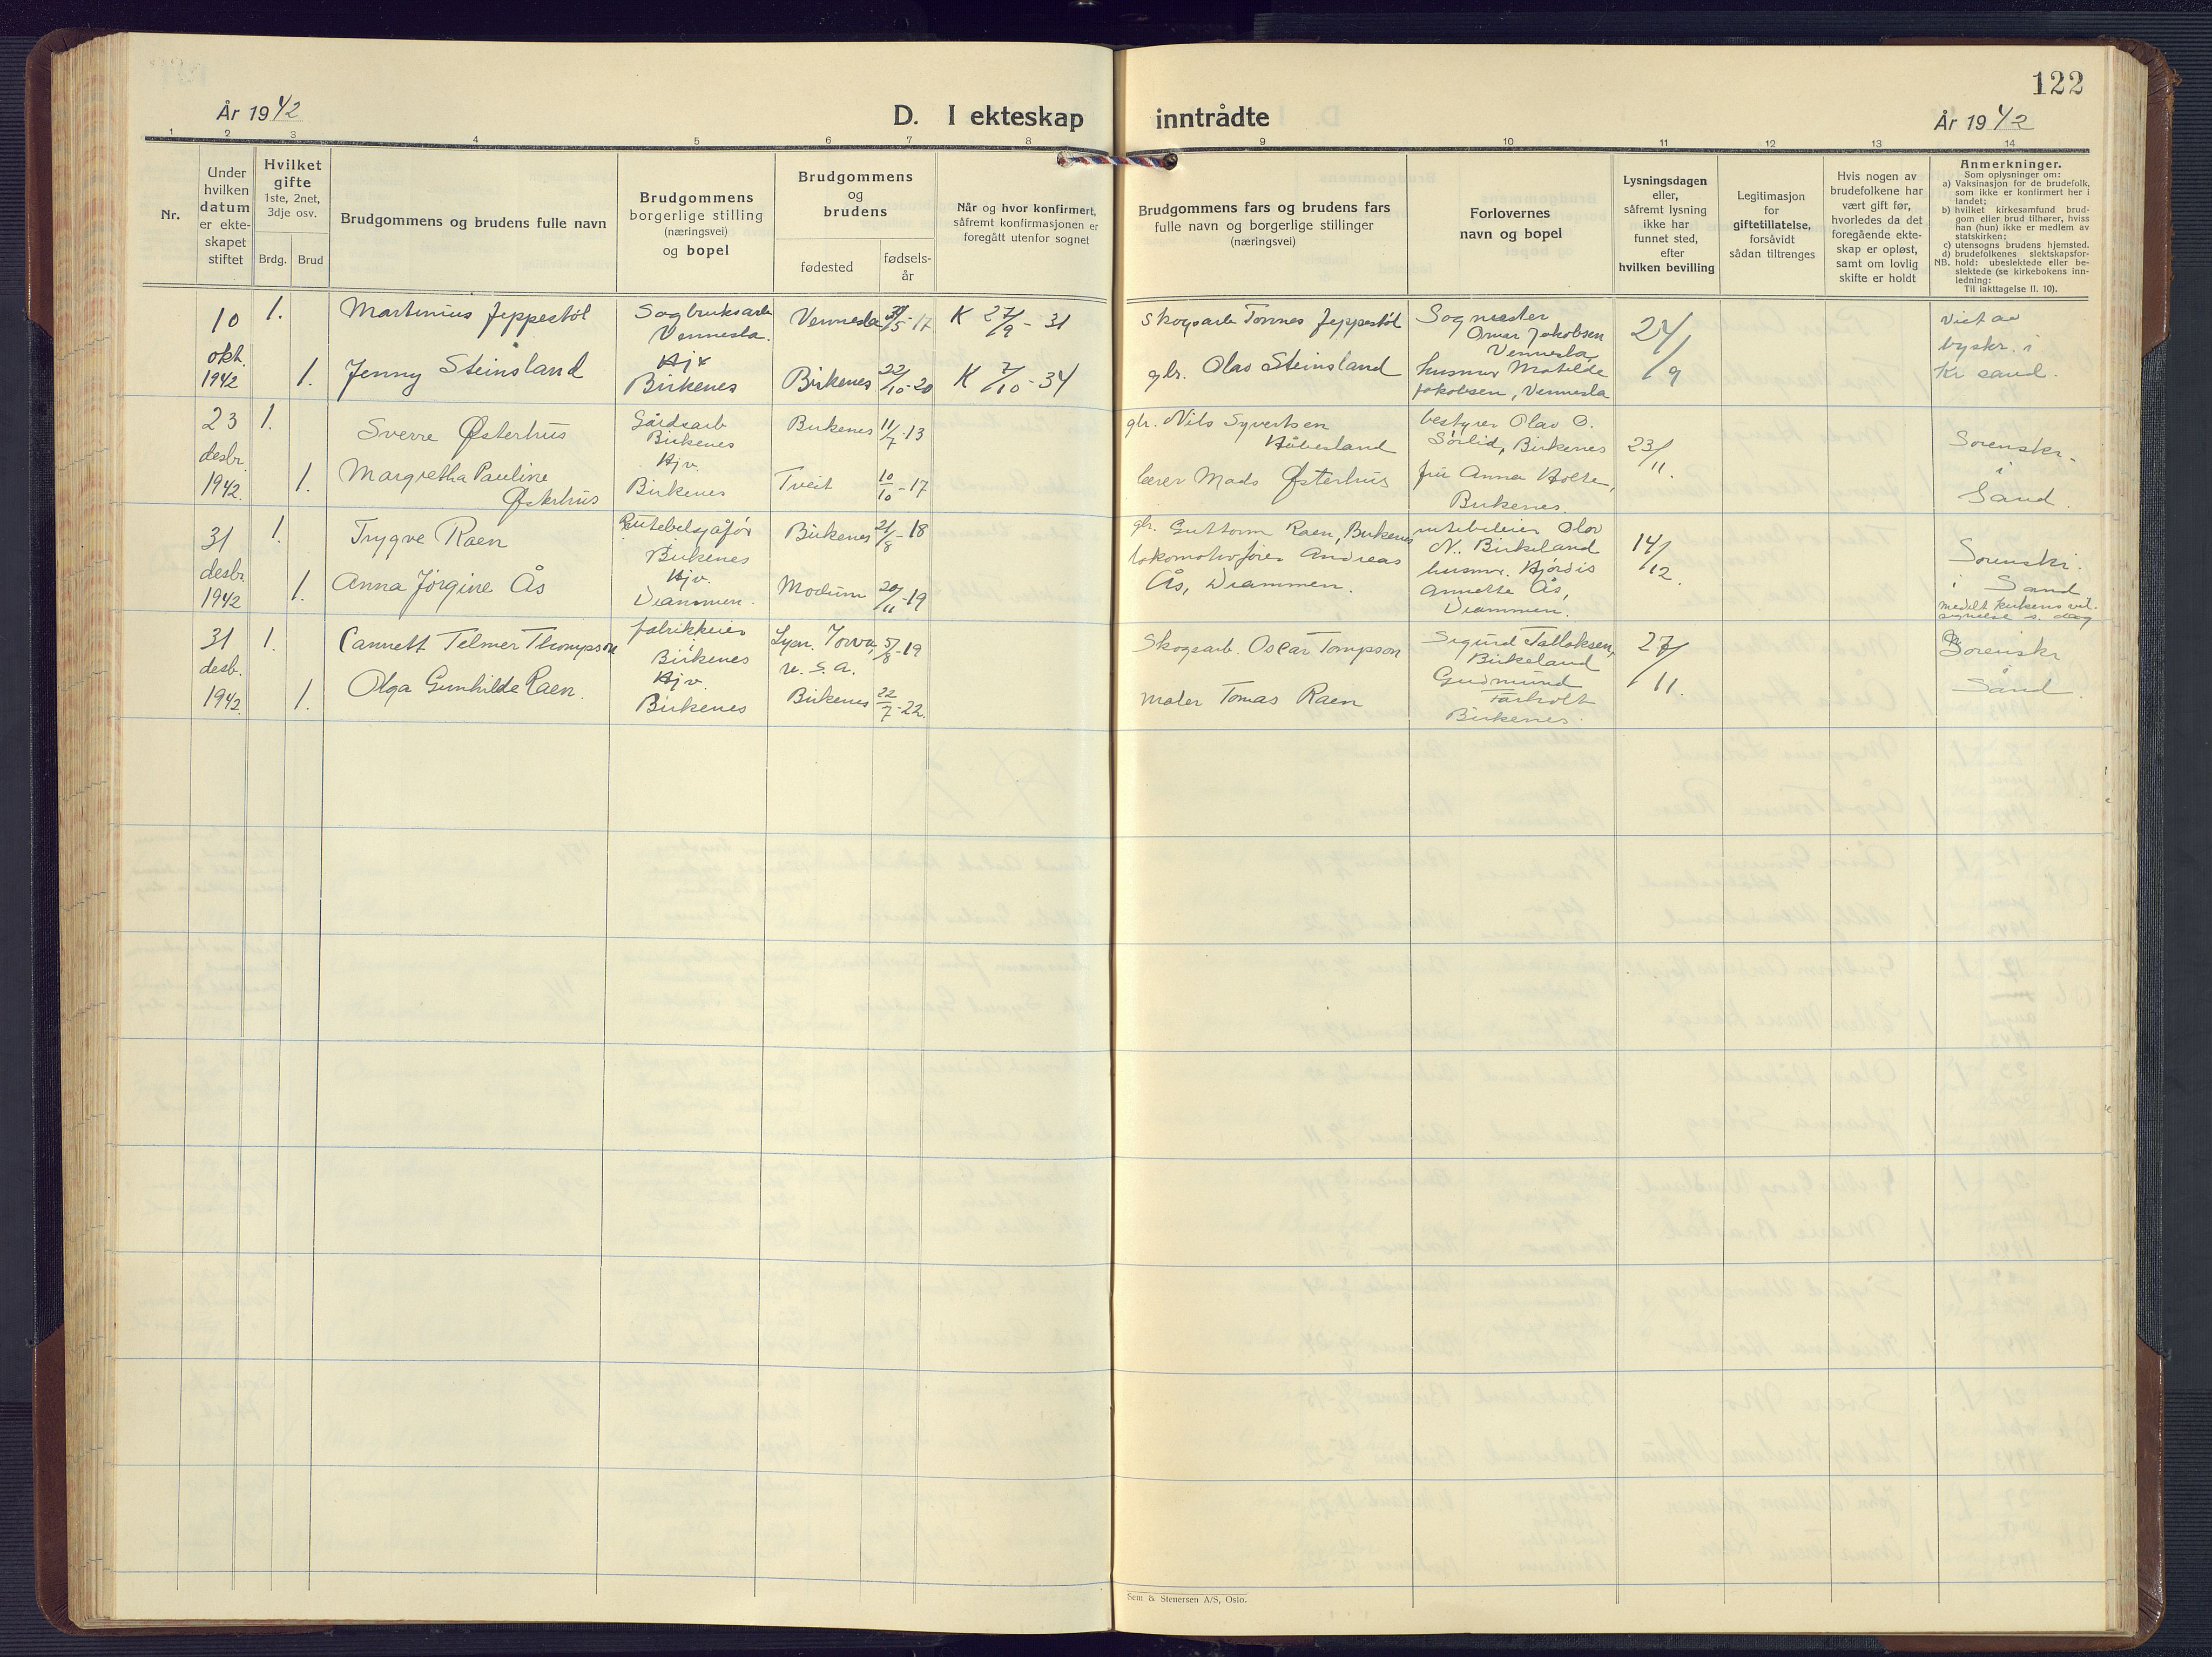 122
År 1942
D. I ekteskap inntrådte
År 1942
1 2 3 4 5 6 7 8 9 10 11 12 13 14
Nr.
Under
hvilken
datum
er ekte-
skapet
stiftet
Hvilket
gifte
1ste, 2net,
3dje osv.
Brdg. Brud
Brudgommens og brudens fulle navn
Brudgommens
borgerlige stilling
(næringsvei)
og bopel
Brudgommens
og
brudens
fødested
fødsels-
år
Når og hvor konfirmert,
såfremt konfirmasjonen er
foregått utenfor sognet
Brudgommens fars og brudens fars
fulle navn og borgerlige stillinger
(næringsvei)
Forlovernes
navn og bopel
Lysningsdagen
eller,
såfremt lysning
ikke har
funnet sted,
efter
hvilken bevilling
Legitimasjon
for
giftetillatelse,
forsåvidt
sådan tiltrenges
Hvis nogen av
brudefolkene har
vært gift før,
hvorledes da det
foregående ekte-
skap er opløst,
samt om lovlig
skifte er holdt
Anmerkninger.
Som oplysninger om:
a) Vaksinasjon for de brudefolk,
som ikke er konfirmert her i
landet;
b) hvilket kirkesamfund brud-
gom eller brud tilhører, hviss
han (hun) ikke er medlem av
statskirken;
c) utensogns brudens hjemsted.
d) brudefolkenes slektskapsfor-
NB. hold: ubeslektede eller be-
slektede (se kirkebokens inn-
ledning:
Til iakttagelse II. 10).
10
okt.
1942
1.
Martinius Jeppestøl
Sagbruksarb
Vennesla.
Vennesla
/5 - 17
K 27/9 - 31
Skogsarb Tønnes Jeppestøl
Sagmester
Omar Jakobsen
Vennesla
24/9
Viet av
byskr. i
Kr sand.
1.
Jenny Steinsland
Hjv
Birkenes
Birkenes
22/10 - 20
K 7/10 - 34
gbr. Olav Steinsland
husmor Matilde
Jakobsen, Vennesla
23
desbr.
1942.
1.
Sverre Østerhus
Gårdsarb
Birkenes
Birkenes
11/7 - 13
gbr. Nils Syvertsen
Håbesland
bestyrer Olav O.
Sørlid, Birkenes
23/11.
Sorenskr.
i
Sand.
1.
Margretha Pauline
Østerhus
Hjv.
Birkenes
Tveit
10/10 - 17
lærer Mads Østerhus
fru Anna Holte,
Birkenes.
31
desbr.
1942
1.
Trygve Raen
Rutebilsjåfør
Birkenes
Birkenes
21/8 - 18
gbr. Guttorm Raen, Birkenes
rutebileier Olav
N. Birkeland
14/12.
Sorenskr.
i Sand
medelt kirkens vel-
signelse s. dag
1.
Anna Jørgine Ås
Hjv.
Drammen.
Modum
20/11 - 19
lokomotivfører Andreas
Ås, Drammen.
husmor. Hjørdis
Annette Ås,
Drammen.
31
desb.
1942.
1.
Cannett Telmer Thompson
fabrikkeier
Birkenes
u. s. a.
5/8 - 19
Skogsarb. Oscar Tompson
Sigurd Tallaksen,
Birkeland
27/11.
Sorenskr
i
Sand.
1.
Olga Gunhilde Raen.
Hjv.
Birkenes
Birkenes
22/7 - 22.
maler Tomas Raen
Gudmund
Tarholt
Birkenes.
Sem & Stenersen A/S, Oslo.